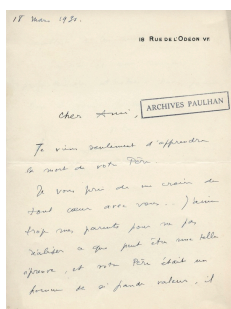 18 mai 1931.
18 RUE DE L'ODÉON VIe
Cher Ami,
ARCHIVES PAULHAN
Je viens seulement d'apprendre
la mort de votre Père.
Je vous prie de me croire de
tout cœur avec vous... J'aime
trop mes parents pour ne pas
réaliser ce que peut être une telle
épreuve, et votre Père était un
homme de si grande valeur, il